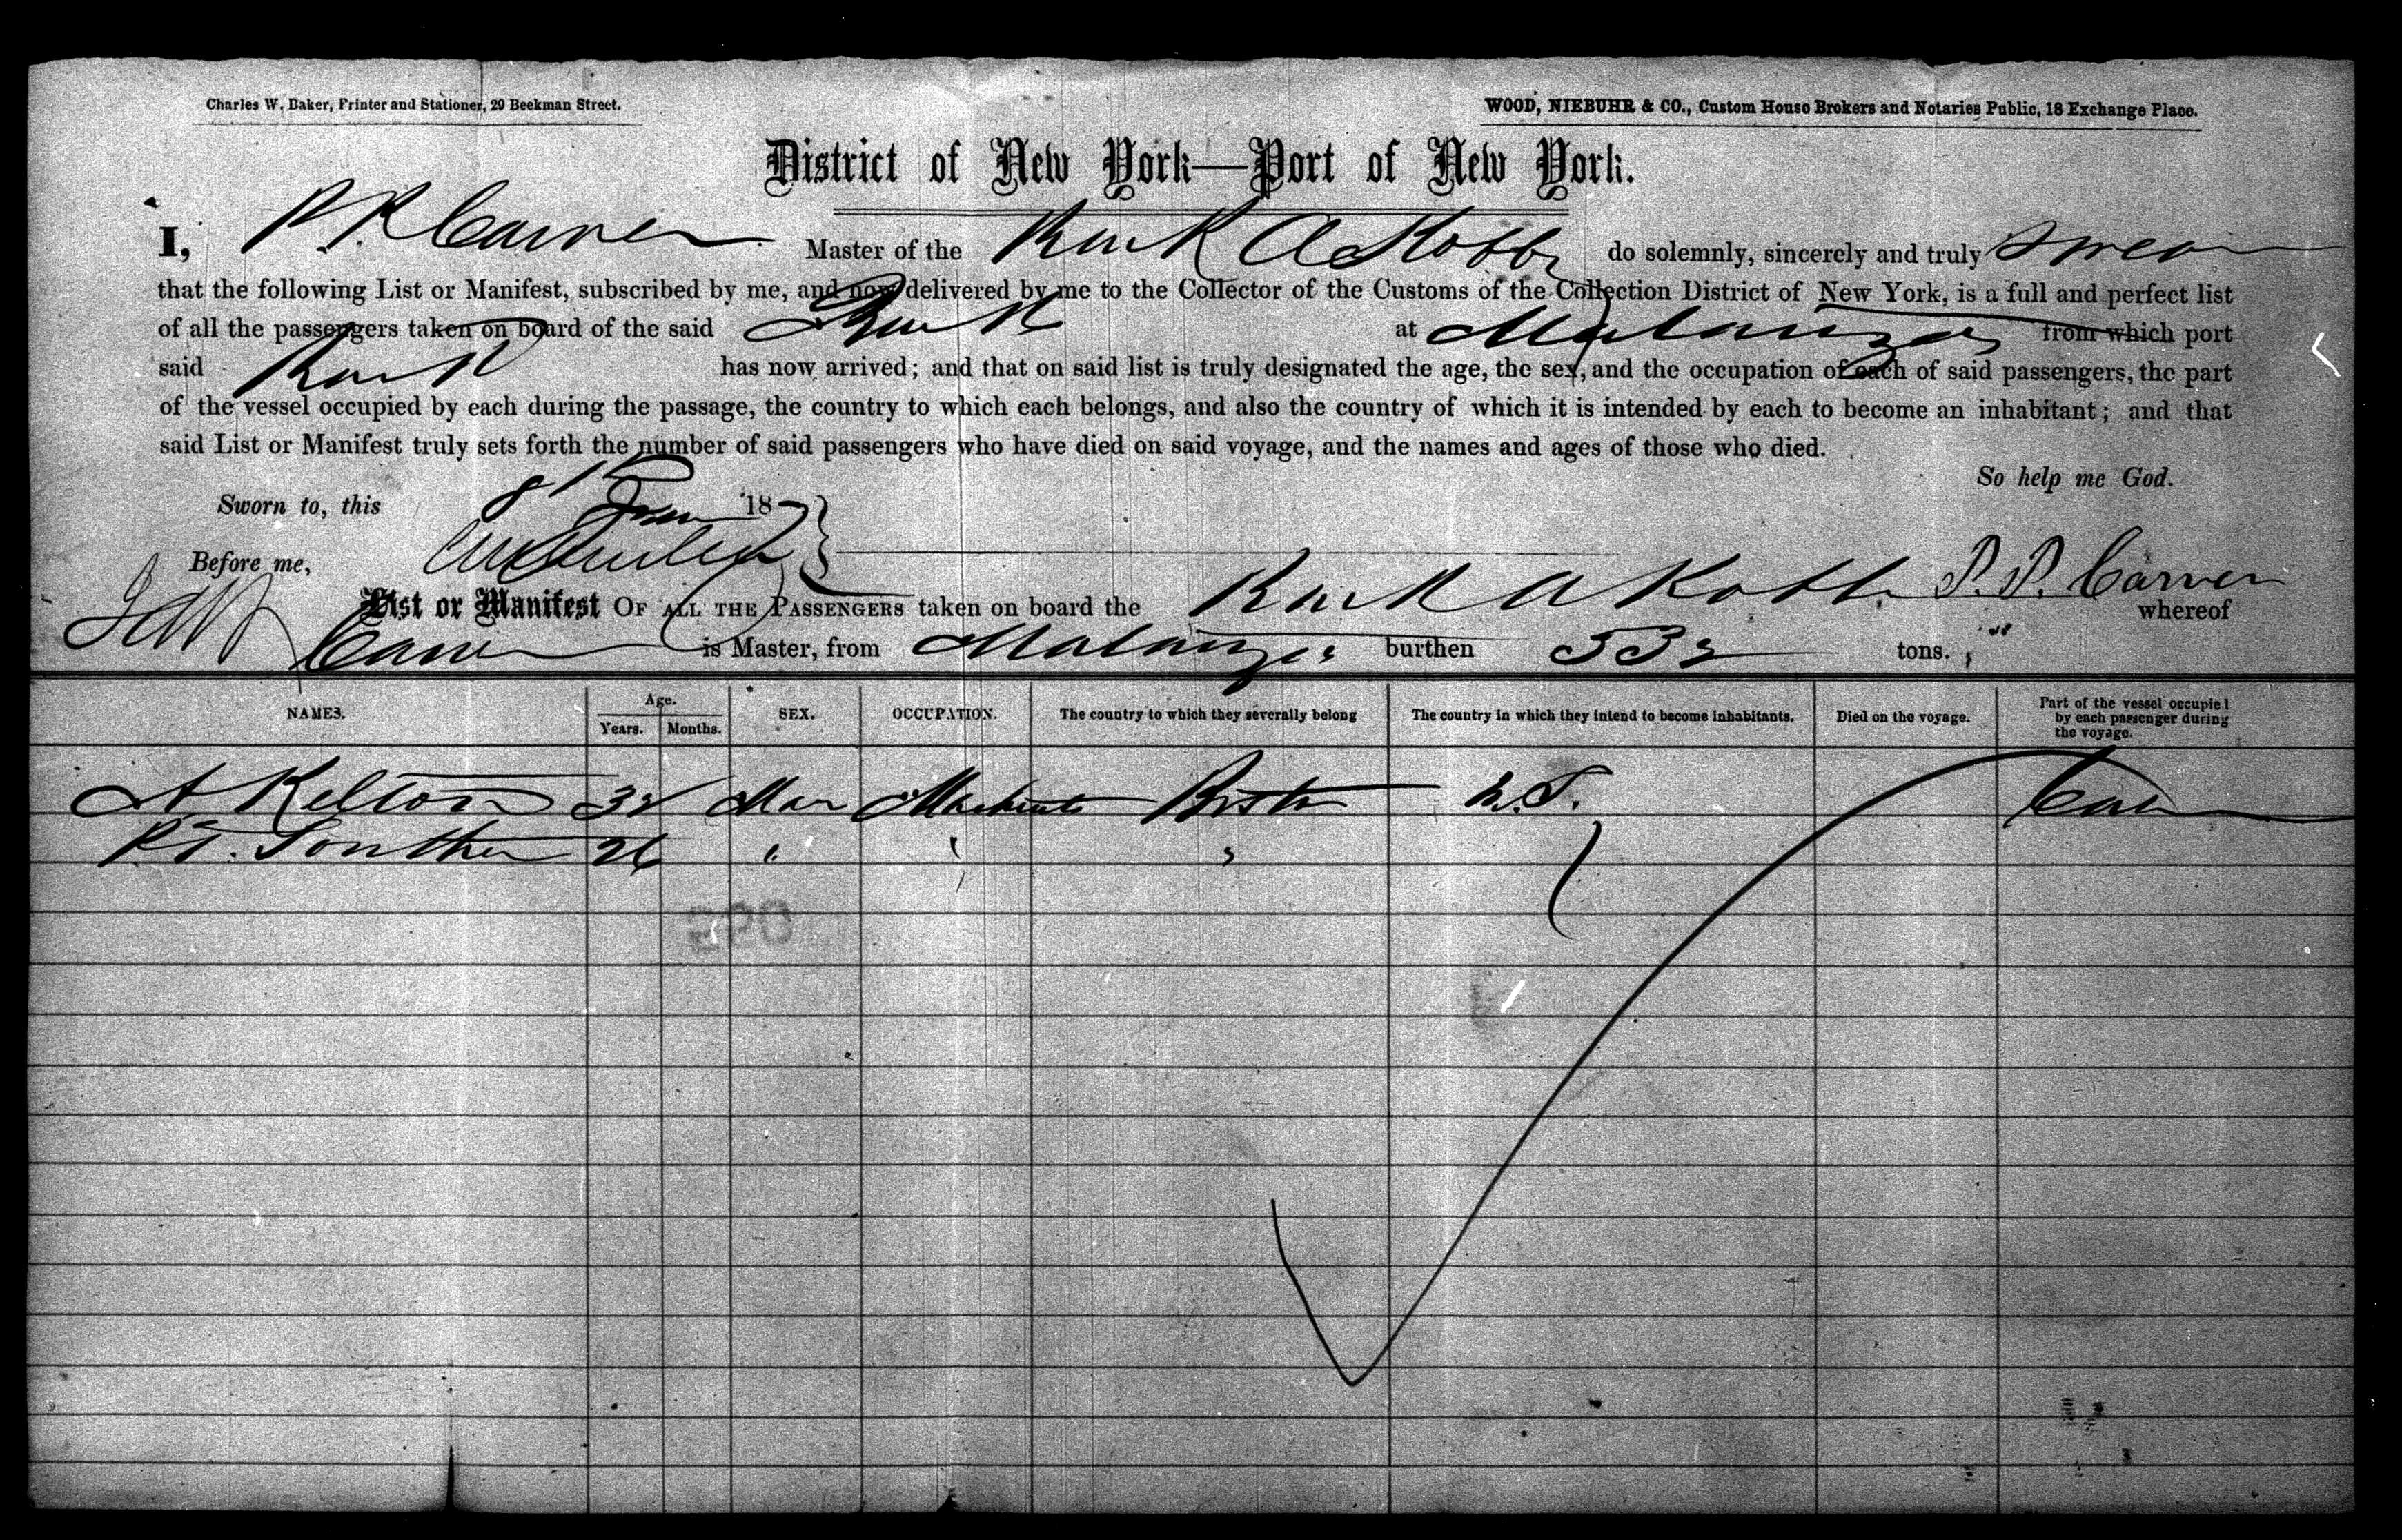 Charles W. Baker, Printer and Stationer, 29 Beekman Street.
WOOD, NIEBUHR & CO., Custom House Brokers and Notaries Public, 18 Exchange Place.
District of New York—Port of New York.
I, Carver Master of the Bark A Kobb do solemnly, sincerely and truly swear
that the following List or Manifest, subscribed by me, and now delivered by me to the Collector of the Customs of the Collection District of New York, is a full and perfect list
of all the passengers taken on board of the said Bark at Matanzas from which port
said Bark has now arrived; and that on said list is truly designated the age, the sex, and the occupation of each of said passengers, the part
of the vessel occupied by each during the passage, the country to which each belongs, and also the country of which it is intended by each to become an inhabitant; and that
said List or Manifest truly sets forth the number of said passengers who have died on said voyage, and the names and ages of those who died.
So help me God.
Sworn to, this 8 18
Before me,
P. P. Carver
List or Manifest OF ALL THE PASSENGERS taken on board the Bark A Kobb whereof
Carver is Master, from Matanzas burthen 532 tons.
NAMES. Age. Years. Months. SEX. OCCUPATION. The country to which they severally belong The country in which they intend to become inhabitants. Died on the voyage. Part of the vessel occupied by each passenger during the voyage.
A Kelton 32 Man Boston
26 " " "